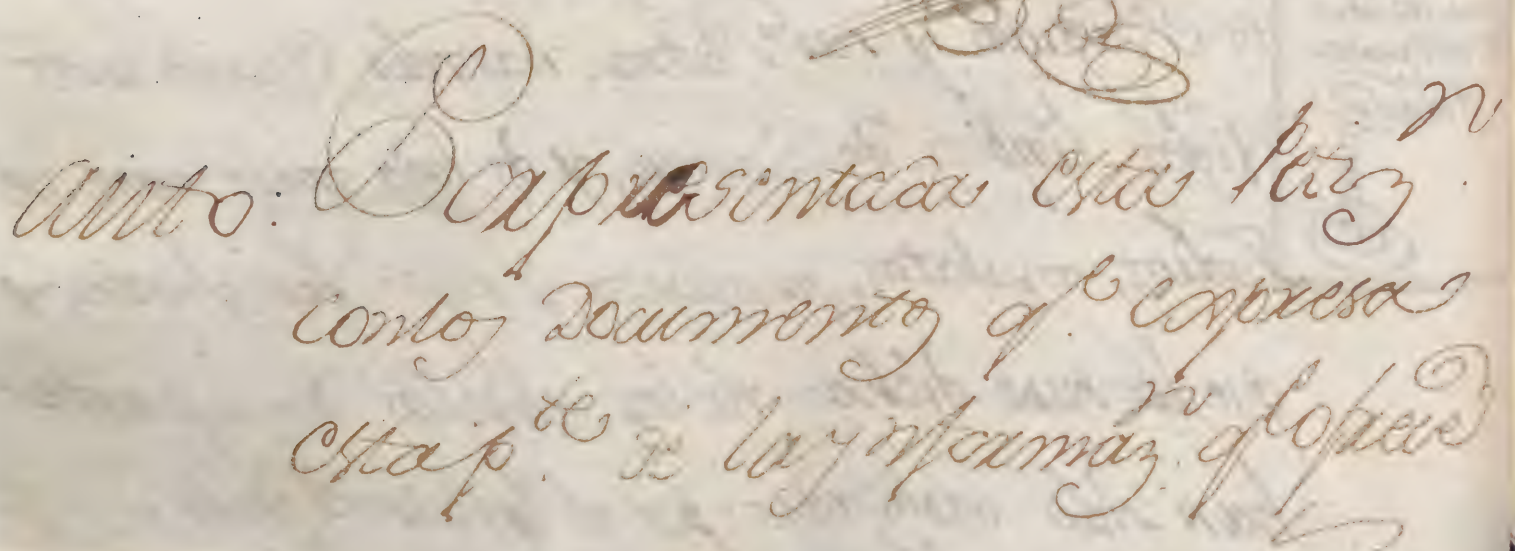 Auto: Por presentada esta Petiz.n
con los Documentos q.e expresa
esta p.te de la ynformaz.n q.e ofrece